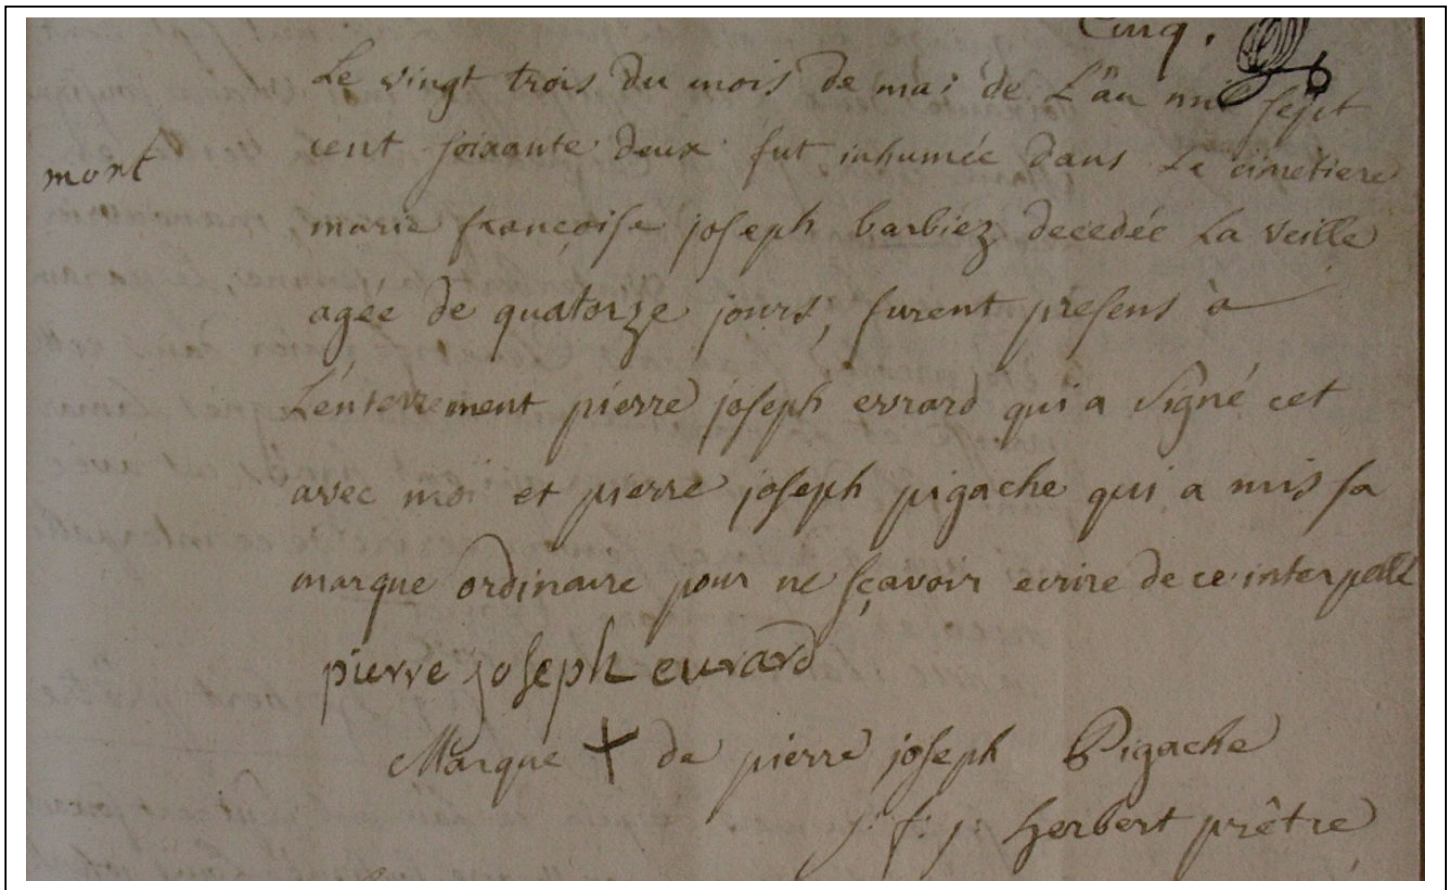 Cinq.
Le vingt trois du mois de mai de L'an mil sept
mort
cent soixante deux fut inhumée dans Le cimetiere
marie françoise joseph barbiez decedée La veille
agée de quatorze jours, furent presens à
L'enterrement pierre joseph evrard qui a signé cet
avec moi et pierre joseph pigache qui a mis sa
marque ordinaire pour ne sçavoir ecrire de ce interpellé
pierre joseph euvard
Marque + de pierre joseph Pigache
j: f: j: herbert prêtre